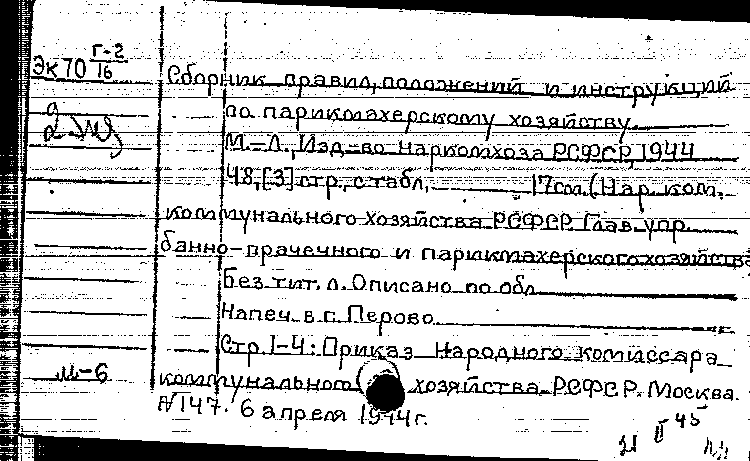 Эк70 Г-2
16
Сборник правил, положений и инструкций
по парикмахерскому хозяйству.
М.–Л., Изд-во Наркомхоза РСФСР, 1944
48, [3] стр., с табл. 17 см. (Нар. ком.
коммунального хозяйства РСФСР. Глав. упр.
банно-прачечного и парикмахерского хозяйства
Без тит. л. Описано по обл.
Напеч. в г. Перово
Стр. 1-4: Приказ Народного комиссара
м-6
коммунального хозяйства РСФСР. Москва.
№147. 6 апреля 1944 г.
II 45